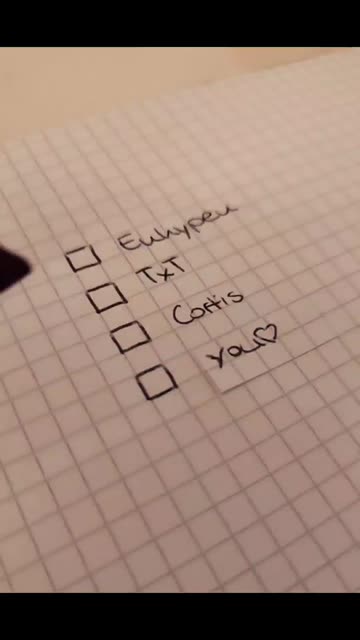 Enhypen
TxT
Cortis
you♡